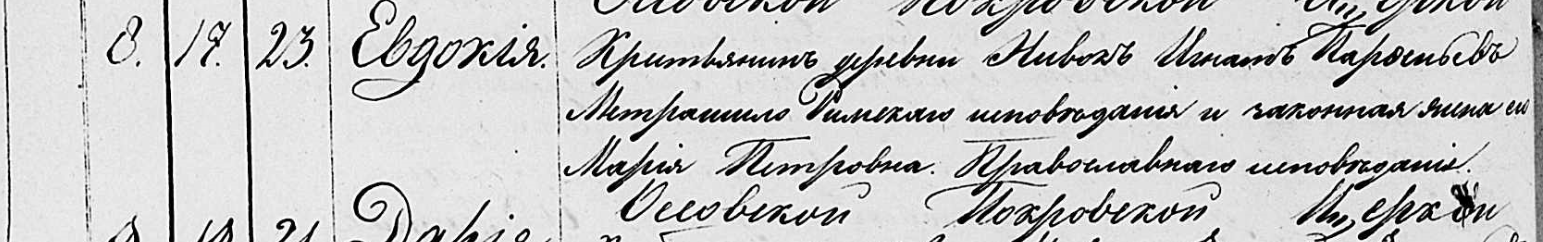 Оссовской Покровской Церкви
8. 17. 23. Евдокія. Крестьянинъ деревни Нивокъ Игнатъ Парѳеньевъ
Метрашило Римскаго исповѣданія и законная жена его
Марія Петровна. Православнаго исповѣданія.
Оссовской Покровской Церкви
Дарія